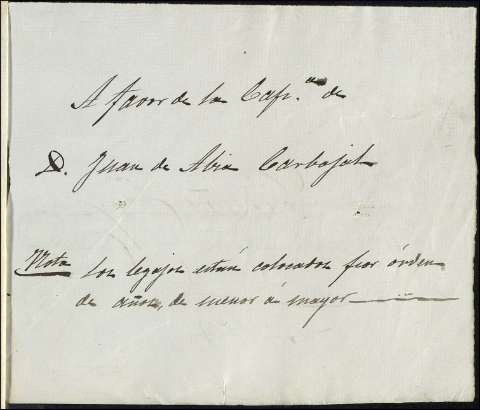 A favor de la Cap.ⁿᵃ de
D. Juan de Abia Carbajal
Nota Los legajos están colocados por órden
de años, de menor á mayor